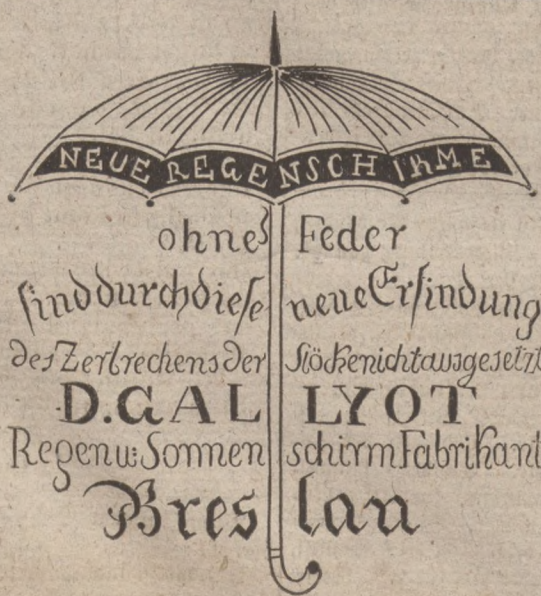 NEUE REGENSCHIRME
ohne Feder
sind durch diese neue Erfindung
des Zerbrechens der Stöcke nicht ausgesetzt
D. GALLYOT
Regen u: Sonnenschirm Fabrikant
Breslau